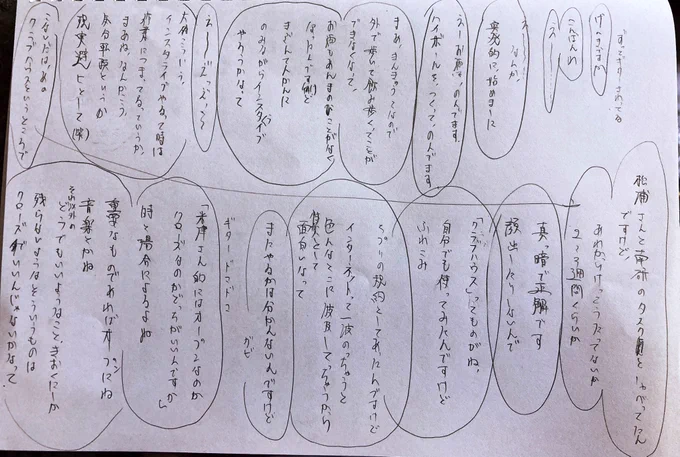 ずっとギターさわってる
げんきですか
こんばんわ
えー
えー なんか、
突発的に始めました
えーお酒をのんでます。
ハイボールを、つくって、のんでます
まぁ、きんきゅうじたいなので
外で歩いて飲み歩くってことが
できなくなって、
お酒もあんまのむことがなく
なったんですけど
きぶんてんかんに
のみながらインスタライブ
やろうかなって
えーーズッズッて
大体こういう、
インスタライブやってる時は
作業につまってるっていうか、
まあね、なんかこう、
現実逃ヒとして(笑)
こないだはあの
クラブハウスというところで
松浦さんと常研のタスク と しゃべってたん
ですけど
あれからけっこうたってないか
2、3週間くらいか
真っ暗で正解です
顔出したりしないんで
「クラブハウス」ってものがね、
自分でも使ってみたんですけど
ふれこみ
インターネットって一波のっちゃうと
色んなとこに波及してっちゃうから
面白いなって
またやるかは分かんないんですけど
グビ
ギタードコドコ
「米津さん的にはオープンなのか
クローズなのかどっちがいいんですか」
時と場合によるよね
重要なものであればオープンにね
音楽とかね
それ以外の
どうでもいいようなこと、
残らないようなどこというものは
クローズ いいんじゃないかなって